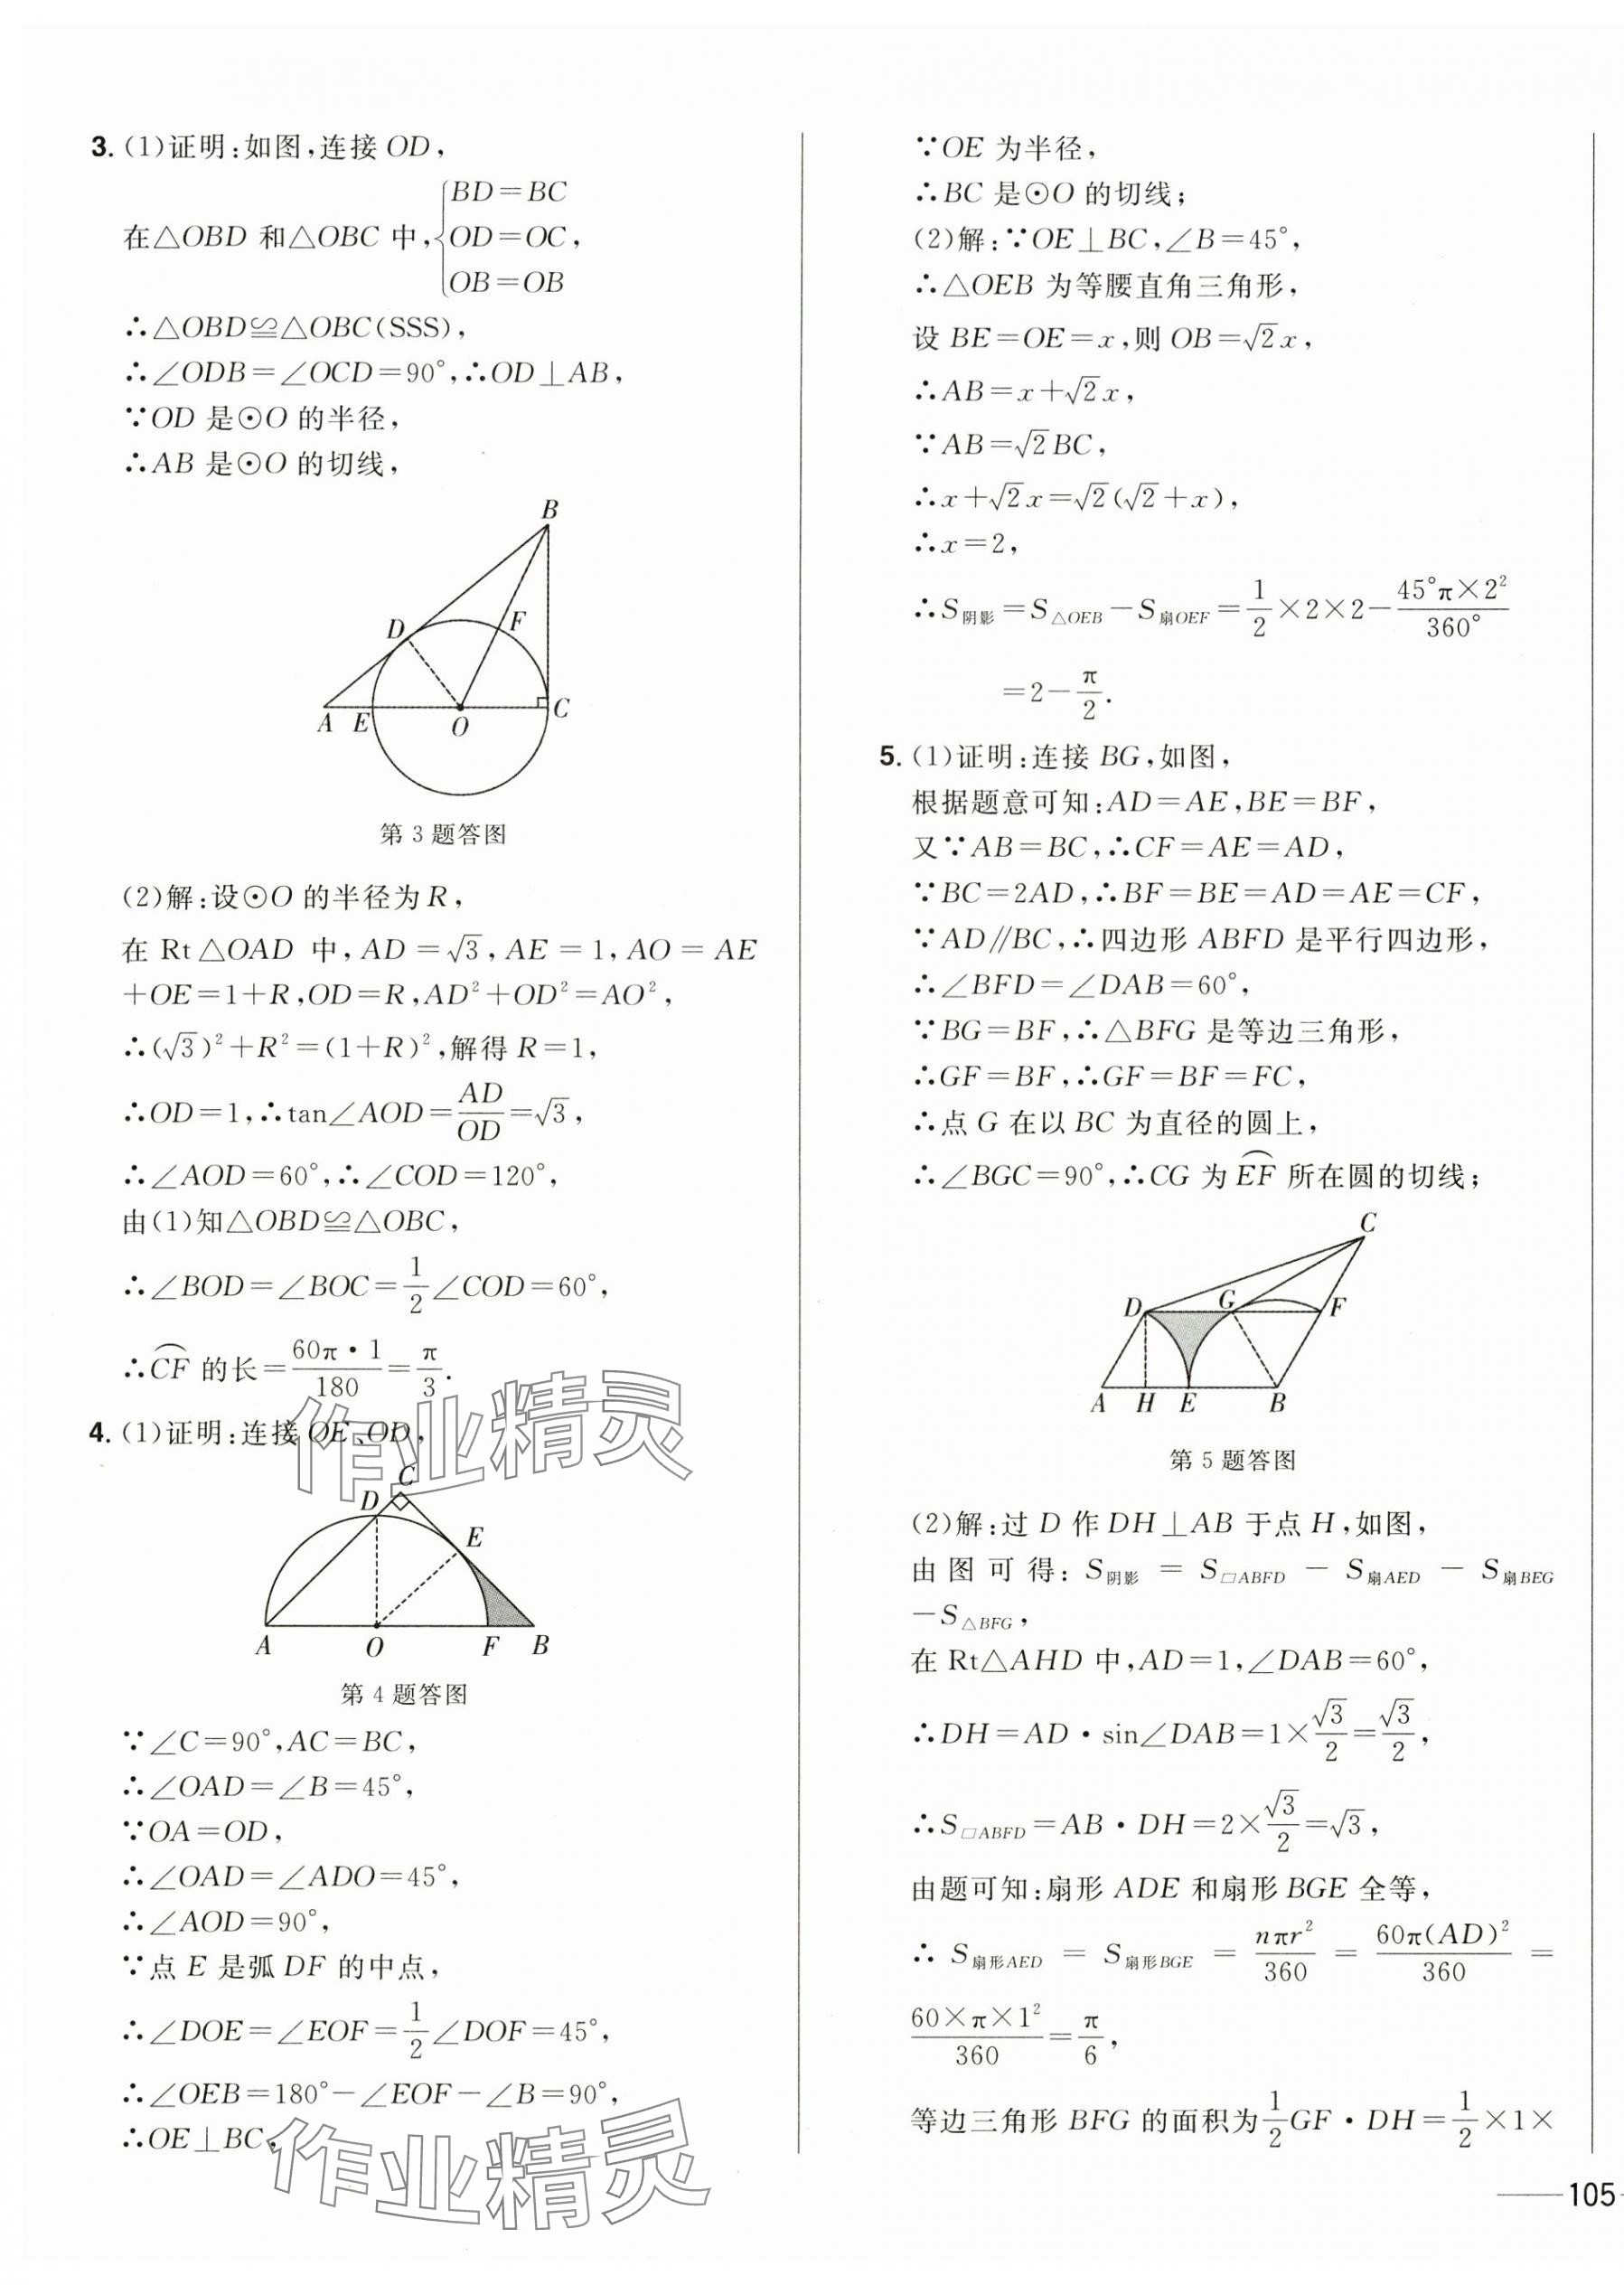 3. (1)证明:如图,连接OD,
在△OBD和△OBC中,{BD=BC
OD=OC,
OB=OB
∴△OBD≌△OBC(SSS),
∴∠ODB=∠OCD=90°,∴OD⊥AB,
∵OD是⊙O的半径,
∴AB是⊙O的切线,
B
D
F
A
E
O
C
第3题答图
(2)解:设⊙O的半径为R,
在Rt△OAD中,AD=√3,AE=1,AO=AE
+OE=1+R,OD=R,AD²+OD²=AO²,
∴(√3)²+R²=(1+R)²,解得R=1,
∴OD=1,∴tan∠AOD=AD/OD=√3,
∴∠AOD=60°,∴∠COD=120°,
由(1)知△OBD≌△OBC,
∴∠BOD=∠BOC=1/2∠COD=60°,
∴⌒CF的长=60π·1/180=π/3.
4. (1)证明:连接OE、OD,
C
D
E
A
O
F
B
第4题答图
∵∠C=90°,AC=BC,
∴∠OAD=∠B=45°,
∵OA=OD,
∴∠OAD=∠ADO=45°,
∴∠AOD=90°,
∵点E是弧DF的中点,
∴∠DOE=∠EOF=1/2∠DOF=45°,
∴∠OEB=180°-∠EOF-∠B=90°,
∴OE⊥BC,
∵OE为半径,
∴BC是⊙O的切线;
(2)解:∵OE⊥BC,∠B=45°,
∴△OEB为等腰直角三角形,
设BE=OE=x,则OB=√2x,
∴AB=x+√2x,
∵AB=√2BC,
∴x+√2x=√2(√2+x),
∴x=2,
∴S阴影=S△OEB-S扇OEF=1/2×2×2-45°π×2²/360°
=2-π/2.
5. (1)证明:连接BG,如图,
根据题意可知:AD=AE,BE=BF,
又∵AB=BC,∴CF=AE=AD,
∵BC=2AD,∴BF=BE=AD=AE=CF,
∵AD∥BC,∴四边形ABFD是平行四边形,
∴∠BFD=∠DAB=60°,
∵BG=BF,∴△BFG是等边三角形,
∴GF=BF,∴GF=BF=FC,
∴点G在以BC为直径的圆上,
∴∠BGC=90°,∴CG为⌒EF所在圆的切线;
C
D
G
F
A
H
E
B
第5题答图
(2)解:过D作DH⊥AB于点H,如图,
由图可得:S阴影=S□ABFD-S扇AED-S扇BEG
-S△BFG,
在Rt△AHD中,AD=1,∠DAB=60°,
∴DH=AD·sin∠DAB=1×√3/2=√3/2,
∴S□ABFD=AB·DH=2×√3/2=√3,
由题可知:扇形ADE和扇形BGE全等,
∴S扇形AED=S扇形BGE=nπr²/360=60π(AD)²/360=
60×π×1²/360=π/6,
等边三角形BFG的面积为1/2GF·DH=1/2×1×
105
作业精灵
作业精灵